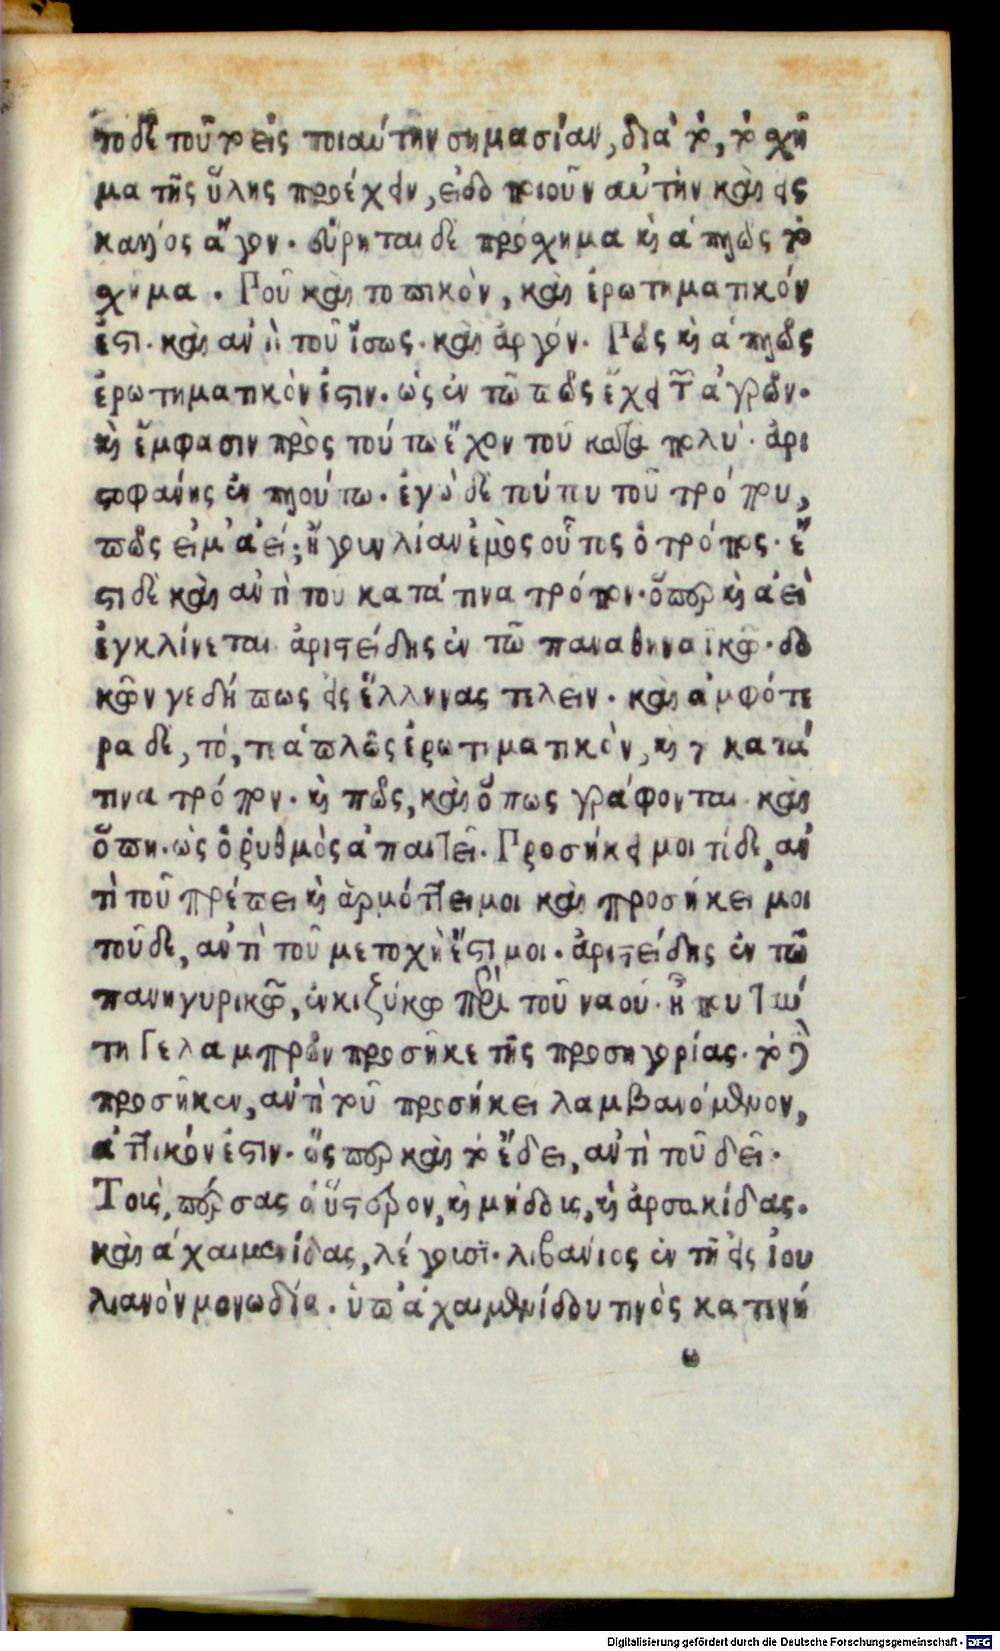 το δὲ τοῦτο εἰς τοιαύτην σημασίαν, διὰ τὸ, τὸ χῆ
μα τῆς ὕλης προέχειν, εἰδοποιοῦν αὐτὴν καὶ εἰς
κάλλος ἄγον. εὕρηται δὲ πρόχημα καὶ ἁπλῶς τὸ
χῆμα. Ποῦ καὶ τοπικὸν, καὶ ἐρωτηματικόν
ἐστι. καὶ ἀντὶ τοῦ ἴσως. καὶ ἀργόν. Πῶς καὶ ἁπλῶς
ἐρωτηματικὸν ἐστιν. ὡς ἐν τῶ πῶς ἔχει τῶν ἀγρῶν.
καὶ ἔμφασιν πρὸς τούτω ἔχον τοῦ κατὰ πολύ. ἀρι
στοφάνης ἐν πλούτω. ἐγὼ δὲ τούτου τοῦ τρόπου,
πῶς εἰμ' ἀεί; ἤγουν λίαν ἐμὸς οὗτος ὁ τρόπος. ἔ
στι δὲ καὶ ἀντὶ του κατά τινα τρόπον. ὅπερ καὶ ἀεὶ
ἐγκλίνεται ἀριστείδης ἐν τῶ παναθηναϊκῶ. δο
κῶν γε δή πως εἰς ἕλληνας τελεῖν. καὶ ἀμφότε
ρα δὲ, τό, τι ἁπλῶς ἐρωτιματικὸν, καὶ τὸ κατά
τινα τρόπον. καὶ πῶς, καὶ ὅπως γράφονται καὶ
ὅπη. ὡς ὁ ῥυθμὸς ἀπαιτεῖ. Προσήκει μοι τί δε, ἀν
τὶ τοῦ πρέπει καὶ ἁρμόττει μοι καὶ προσήκει μοι
τοῦδε, ἀντὶ τοῦ μετοχὴ ἔστι μοι. ἀριστείδης ἐν τῶ
πανηγυρικῶ, ἐν κιζύκω περὶ τοῦ ναού. ἢ που
λαμπρῶν προσῆκε τῆς προσηγορίας. τὸ δὲ
προσῆκεν, ἀντὶ τοῦ προσήκει λαμβανόμενον,
ἀττικόν ἐστιν. ὥσπερ καὶ τὸ ἔδει, ἀντὶ τοῦ δεῖ.
Τοὺς, πέρσας ὁ ὕστερον, καὶ μήδους, καὶ ἀρσακίδας.
καὶ ἀχαιμενίδας, λέγουσι. λιβανίος ἐν τῆ εἰς ἰου
λιανὸν μονωδία. ὑπ' ἀχαιμενίδου τινὸς κατινή
ω